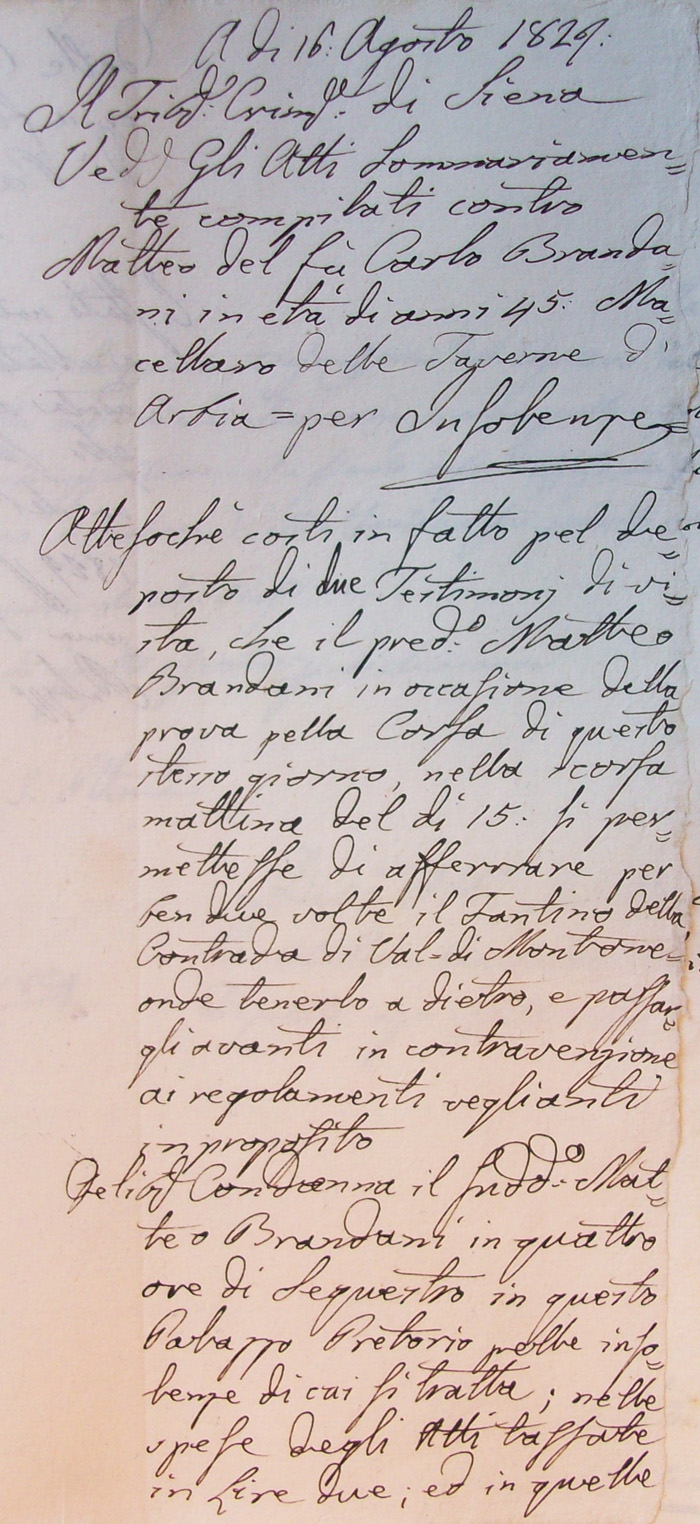 A di 16: Agosto 1829:
Il Tribl: Criml: di Siena
Ved Gli Atti Sommariamen=
te compilati contro
Matteo del fù Carlo Branda=
ni in età di anni 45: Ma=
cellaro delle Taverne d'
Arbia = per Insolenze
Attesochè costi in fatto pel de=
posto di due Testimonj di vi=
sta, che il predo: Matteo
Brandani in occasione della
prova pella Corsa di questo
stesso giorno, nella scorsa
mattina del di 15: si per=
mettesse di afferrare per
ben due volte il Fantino della
Contrada di Val=di Montone=
onde tenerlo a dietro, e passar=
gli avanti in contravenzione
ai regolamenti veglianti
in proposito
Delibd Condanna il suddo: Mat=
teo Brandani in quattro
ore di Sequestro in questo
Palazzo Pretorio pelle inso=
lenze di cui si tratta; nelle
spese degli Atti tassate
in Lire due; ed in quelle